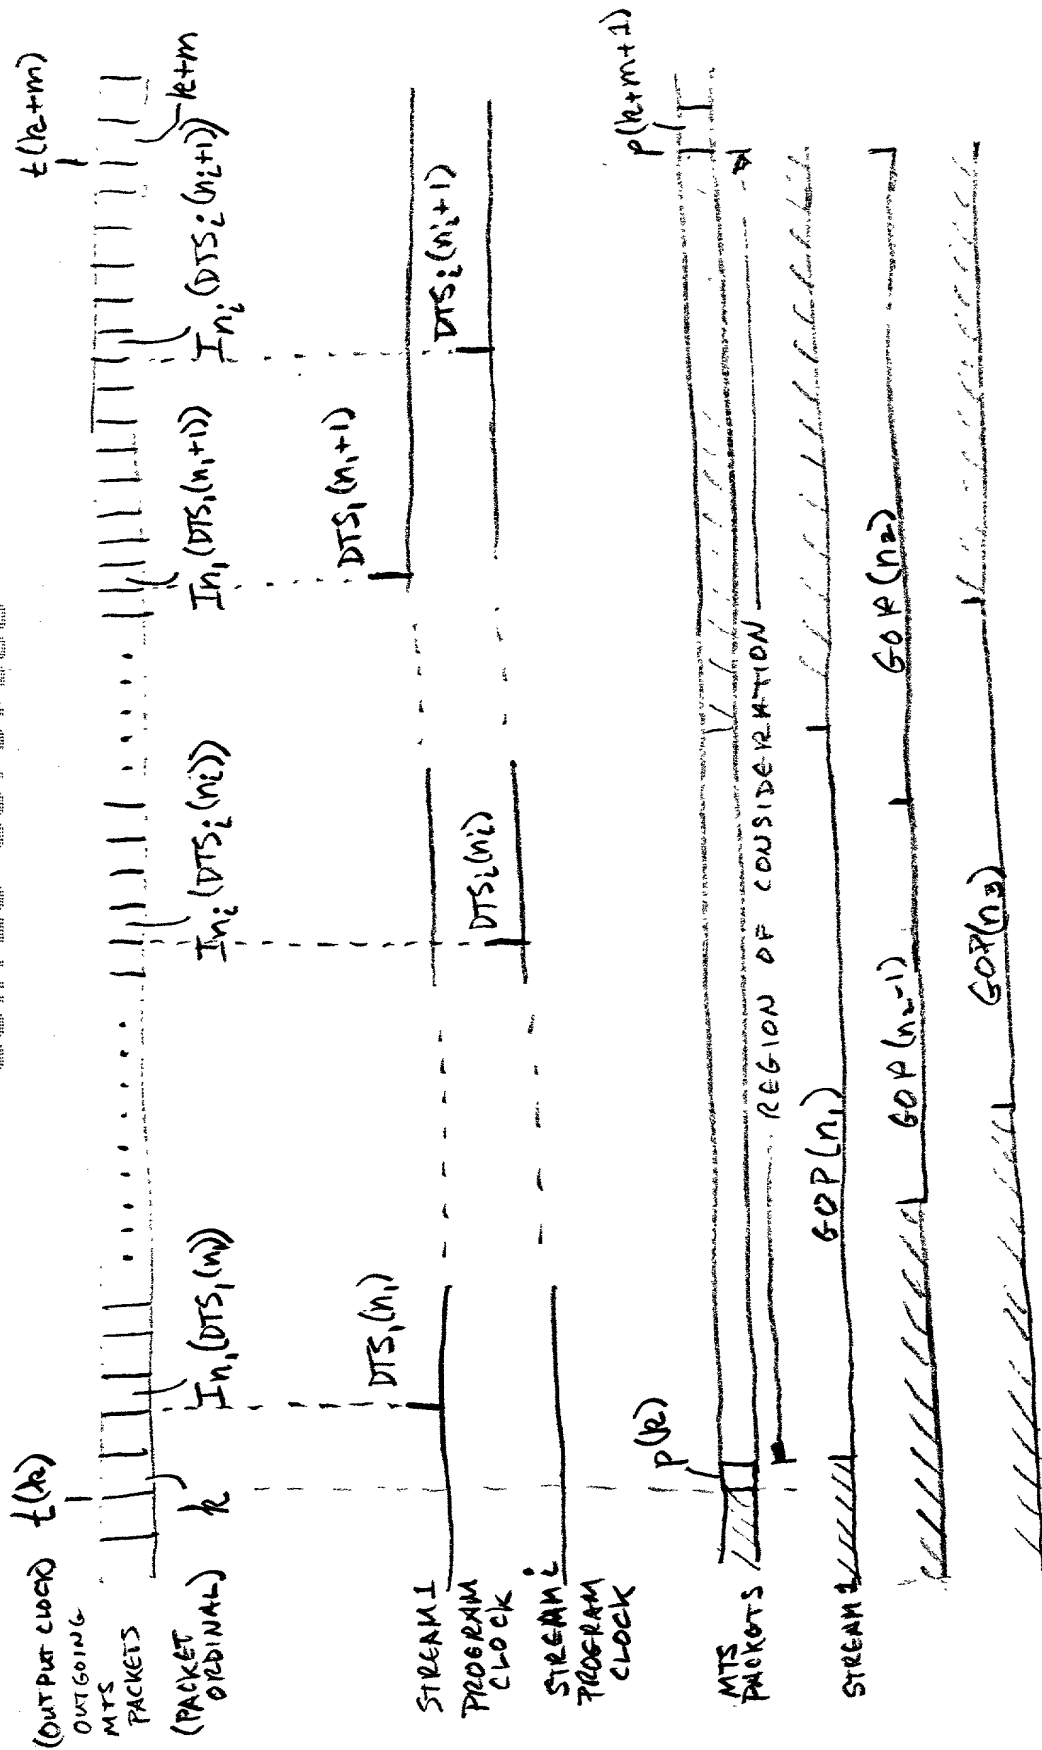 (OUTPUT CLOCK) t(k) t(k+m)
OUTGOING
MTS
PACKETS
(PACKET
ORDINAL)
k
In₁(DTS₁(n₁))
Inᵢ(DTSᵢ(nᵢ))
In₁(DTS₁(n₁+1))
Inᵢ(DTSᵢ(nᵢ+1))
k+m
STREAM 1
PROGRAM
CLOCK
DTS₁(n₁)
DTS₁(n₁+1)
STREAM i
PROGRAM
CLOCK
DTSᵢ(nᵢ)
DTSᵢ(nᵢ+1)
MTS
PACKETS
p(k)
p(k+m+1)
REGION OF CONSIDERATION
STREAM 1
GOP(n₁)
GOP(n₂-1)
GOP(n₂)
GOP(n₃)